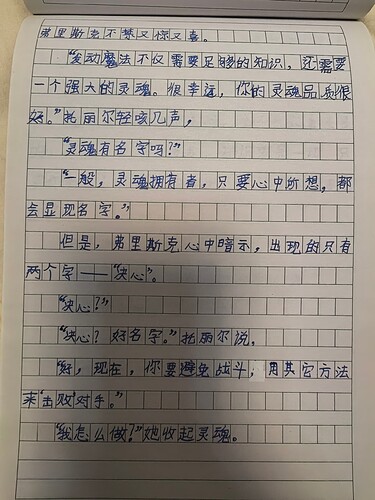 弗里斯克不禁又惊又喜。
“发动魔法不仅需要足够的知识，还需要
一个强大的灵魂。很幸运，你的灵魂品质很
好。”托丽尔轻咳几声，
“灵魂有名字吗？”
“一般，灵魂拥有者，只要心中所想，都
会显现名字。”
但是，弗里斯克心中暗示，出现的只有
两个字——“决心”。
“决心？”
“决心？好名字。”托丽尔说。
“好，现在，你要避免战斗，用其它方法
来‘击败’对手。”
“我怎么做？”她收起灵魂。